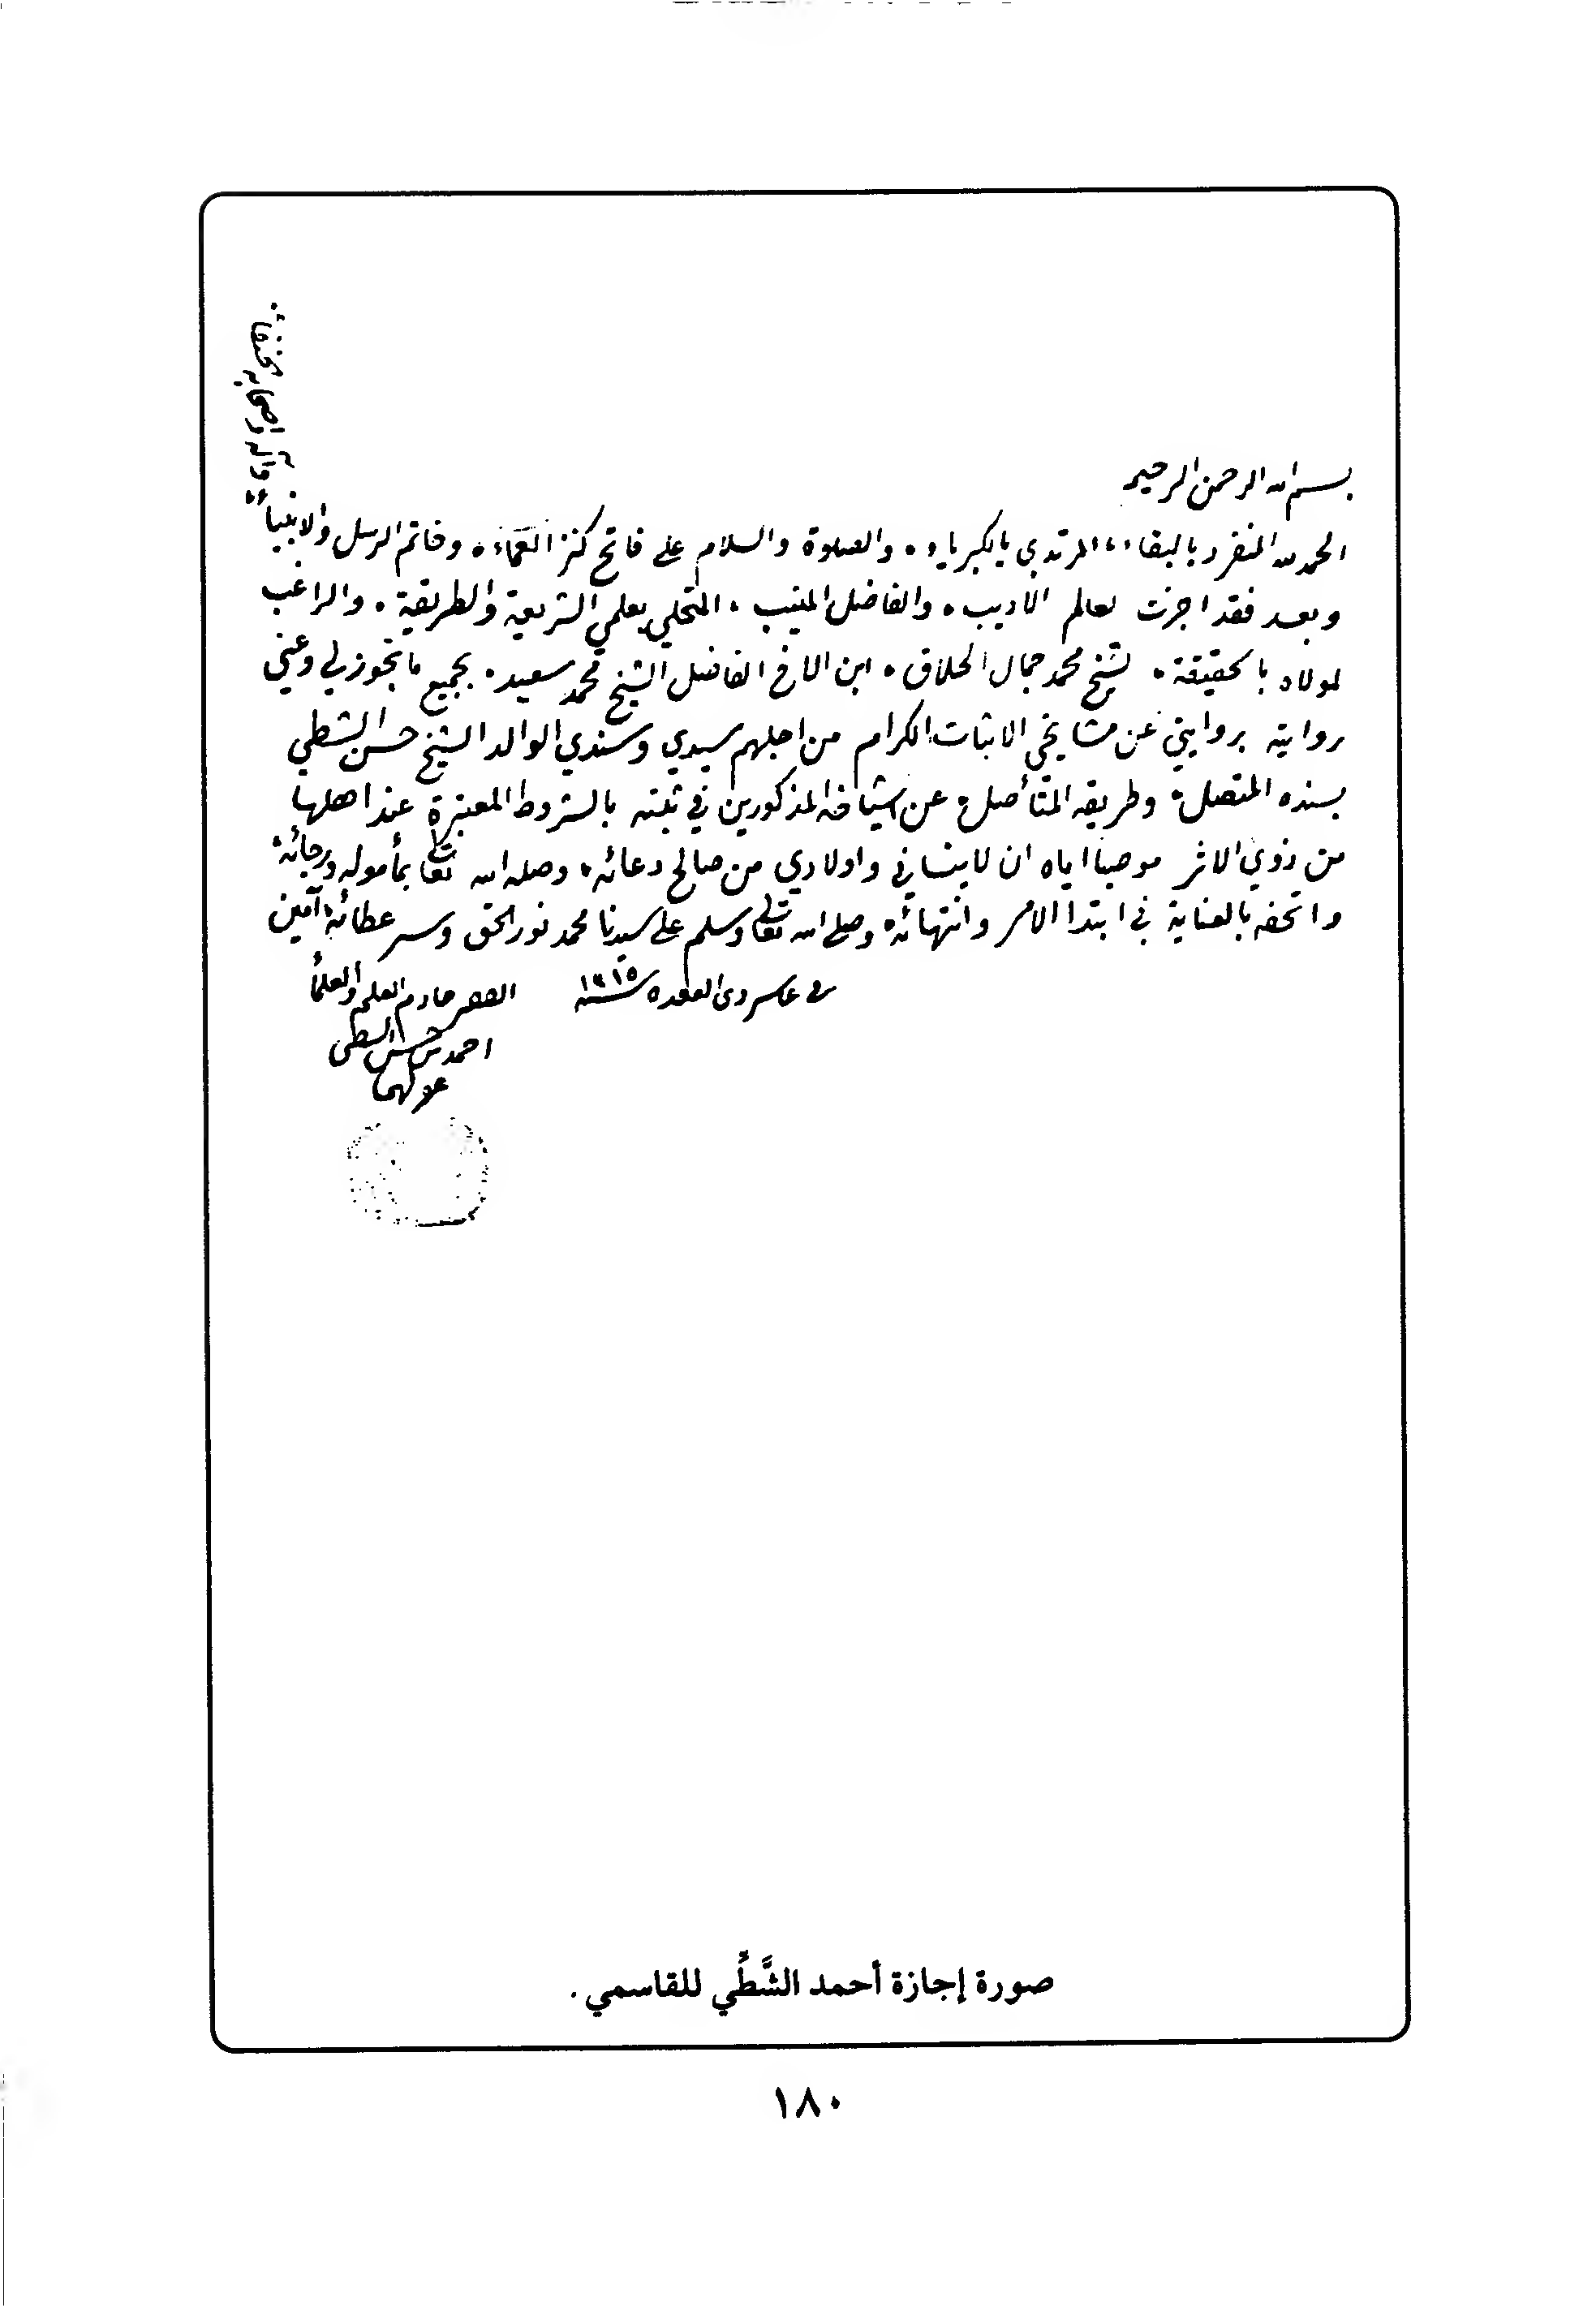 بسم الله الرحمن الرحيم
الحمد لله المنفرد بالبقاء، المرتدي بالكبرياء. والصلوة والسلام على فاتح كنز العماء. وخاتم الرسل والانبياء
وآله واصحابه
وبعد فقد اجزت لعالم الاديب. والفاضل المنيب. المتحلي بعلمي الشريعة والطريقة. والراغب
لمولاه بالحقيقة. الشيخ محمد جمال الحلاق. ابن الاخ الفاضل الشيخ محمد سعيد. بجميع ما تجوز لي وعني
روايته بروايتي عن مشايخي الاثبات الكرام من اجلهم سيدي وسندي الوالد الشيخ حسن الشطي
بسنده المتصل. وطريقه المتأصل. عن اشياخه المذكورين في ثبته بالشروط المعتبرة عند اهلها
من ذوي الاثر موصيا اياه ان لا ينساني واولادي من صالح دعائه. وصله الله تعالى بمأموله ورجائه.
واتحفه بالعناية في ابتدا الامر وانتهائه. وصلى الله تعالى وسلم على سيدنا محمد نور الحق وسر عطائه. آمين
في عاشر ذي القعدة سنة ١٣١٥
الفقير خادم العلم والعلما
احمد بن حسن الشطي
عفي عنهما
صورة إجازة أحمد الشَّطِّي للقاسمي.
١٨٠